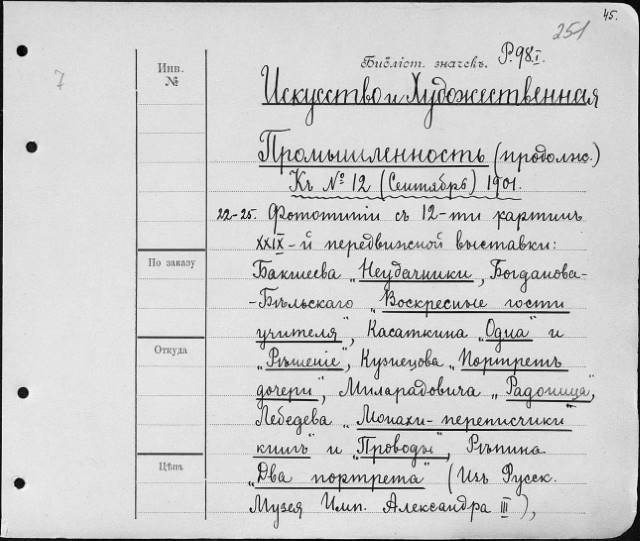 45.
251
7
Инв.
№
Библіот. значекъ. Р.98.I.
Искусство и Художественная
Промышленность (продолж.)
Къ № 12 (Сентябрь) 1901.
22-25. Фототипіи съ 12-ти картинъ
XXIX-й передвижной выставки:
По заказу
Бакшеева „Неудачники", Богданова-
-Бѣльскаго „Воскресные гости
учителя", Касаткина „Одна" и
Откуда
„Рѣшеніе", Кузнецова „Портретъ
дочери", Миларадовича „Радоница",
Лебедева „Монахи-переписчики
книгъ" и „Проводы", Рѣпина
Цѣнъ
„Два портрета" (Изъ Русск.
Музея Имп. Александра III),